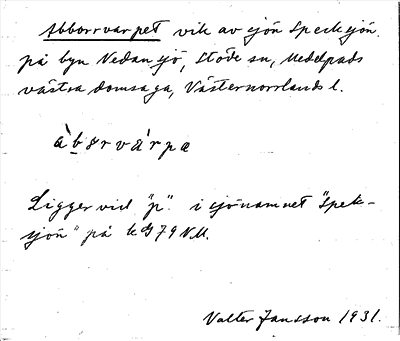 Abborrvarpet vik av sjön Specksjön
på byn Nedansjö, Stöde sn, Medelpads
västra domsaga, Västernorrlands l.
Ligger vid "p" i sjönamnet "Spek-
sjön" på kG 79 N.M.
Valter Jansson 1931.